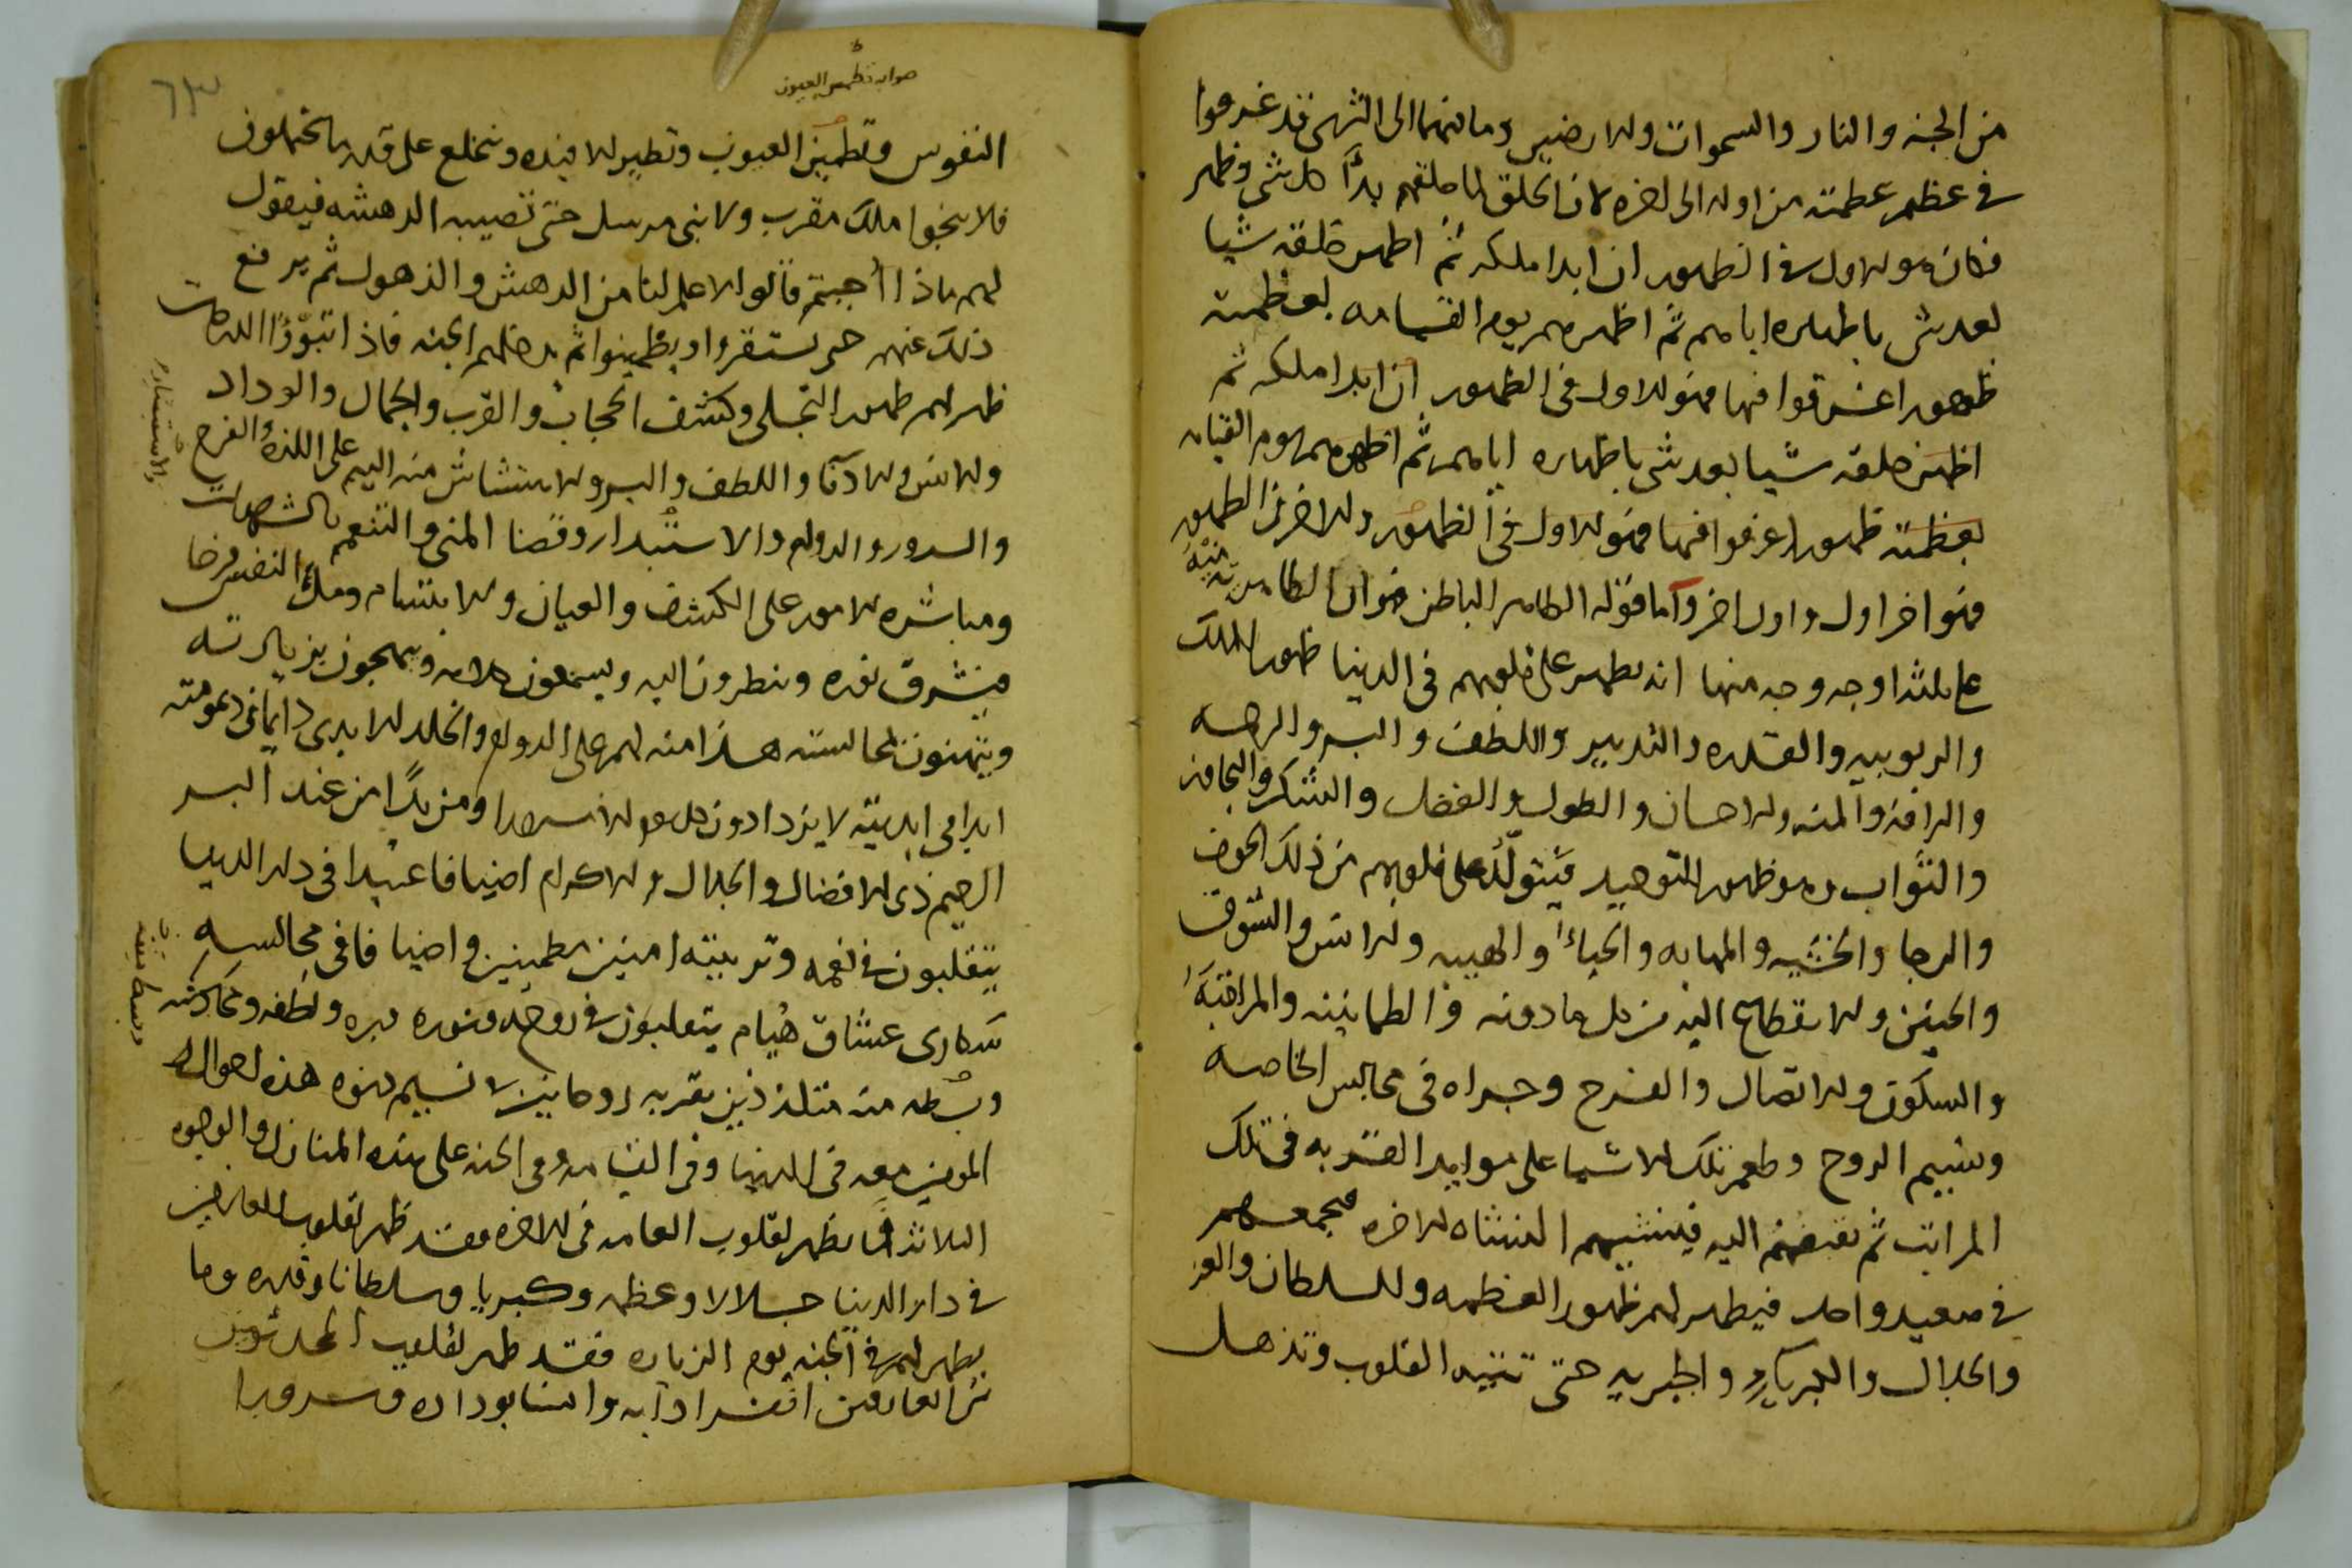 من الجنه والنار والسموات والارضين وما بينهما الى الثرى قد غرقوا
في عظم عظمته من اوله الى اخره لان الخلق لما خلقهم بدأ كل شي وظهر
فكان هو الاول في الظهور ان ابدا ملكه ثم اظهر خلقه شيا
بعد شي باظهاره اياهم ثم اظهرهم يوم القيامه بعظمته
ظهورا غرقوا فيها فهو الاول في الظهور ان ابدا ملكه ثم
اظهر خلقه شيا بعد شي باظهاره اياهم ثم اظهرهم يوم القيامه
بعظمته ظهورا غرقوا فيها فهو الاول في الظهور والاخر في الظهور
فهو اخر اول واول اخر واما قوله الظاهر الباطن فهو ان الظاهريه منه
على ثلثه اوجه وجه منها انه يظهر على قلوبهم في الدنيا ظهور الملك
والربوبيه والقدره والتدبير واللطف والبر والرحمه
والرافه والمنه والاحسان والطول والفضل والشكر والتجاوز
والثواب وهو ظهور التوحيد فيتولد على قلوبهم من ذلك الخوف
والرجا والخشيه والمهابه والحياء والهيبه والانس والشوق
والحنين والانقطاع اليه من كل ما دونه والطمانينه والمراقبة
والسكون والاتصال والفرح وجراه في مجالس الخاصه
ونسيم الروح وطعم تلك الاشيا على موايد القربه في تلك
المراتب ثم يقبضهم اليه فينشيهم النشاه الاخره فيجمعهم
في صعيد واحد فيظهر لهم ظهور العظمه والسلطان والعز
والجلال والكبرياء والجبريه حتى تتيه القلوب وتذهل
٦٣
صوابه تطمس العيون
النفوس وتطمين العيون وتطير الافيده وينخلع على قدر ما يحتملون
فلا ينجوا ملك مقرب ولا نبي مرسل حتى تصيبه الدهشه فيقول
لهم ماذا أجبتم قالوا لا علم لنا من الدهش والذهول ثم يرفع
ذلك عنهم حتى يستقروا ويطمينوا ثم يدخلهم الجنه فاذا تبوّؤا الدرجات
ظهر لهم ظهور التجلي وكشف الحجاب والقرب والجمال والوداد
والانس والادنا واللطف والبر والابتشاش منه اليهم على اللذه والفرح
والاستبشار
والسرور والدوام والاستبدار وقضا المنى والتنعم بالشهوات
ومباشره الامور على الكشف والعيان والابتسام وملك النفس فرحا
فيشرق نوره وينظرون اليه ويسمعون كلامه ويبهجون بزيارته
ويتهنون بمجالسته هذا منه لهم على الدوام والخلد الابدي دايما في ديمومته
ابدا في ابديته لا يزدادون ومزيدًا من عند البر
الرحيم ذي الافضال والجلال والاكرام اضيافا عبيدا في دار الدنيا
يتقلبون في نعمه وتربيته امنين مطمينين واضيافا في مجالسه
سكارى عشاق هُيام يتقلبون في روحه ونوره وبره ولطفه
وبسطه منه متلذذين بقربه روحانيين لا نسيم هذه احوال
المومنين معه في الدنيا وفي القيامه وفي الجنه على هذه المنازل والوجوه
الثلاثه فما يظهر لقلوب العامه في الاخره فقد ظهر لقلوب العارفين
في دار الدنيا جلالا وعظمه وكبريا وسلطانا وقدره وما
يظهر لهم في الجنه يوم الزياره فقد ظهر لقلوب المحدثون
من العارفين انفرادا به وانسا بوداده وسرورا